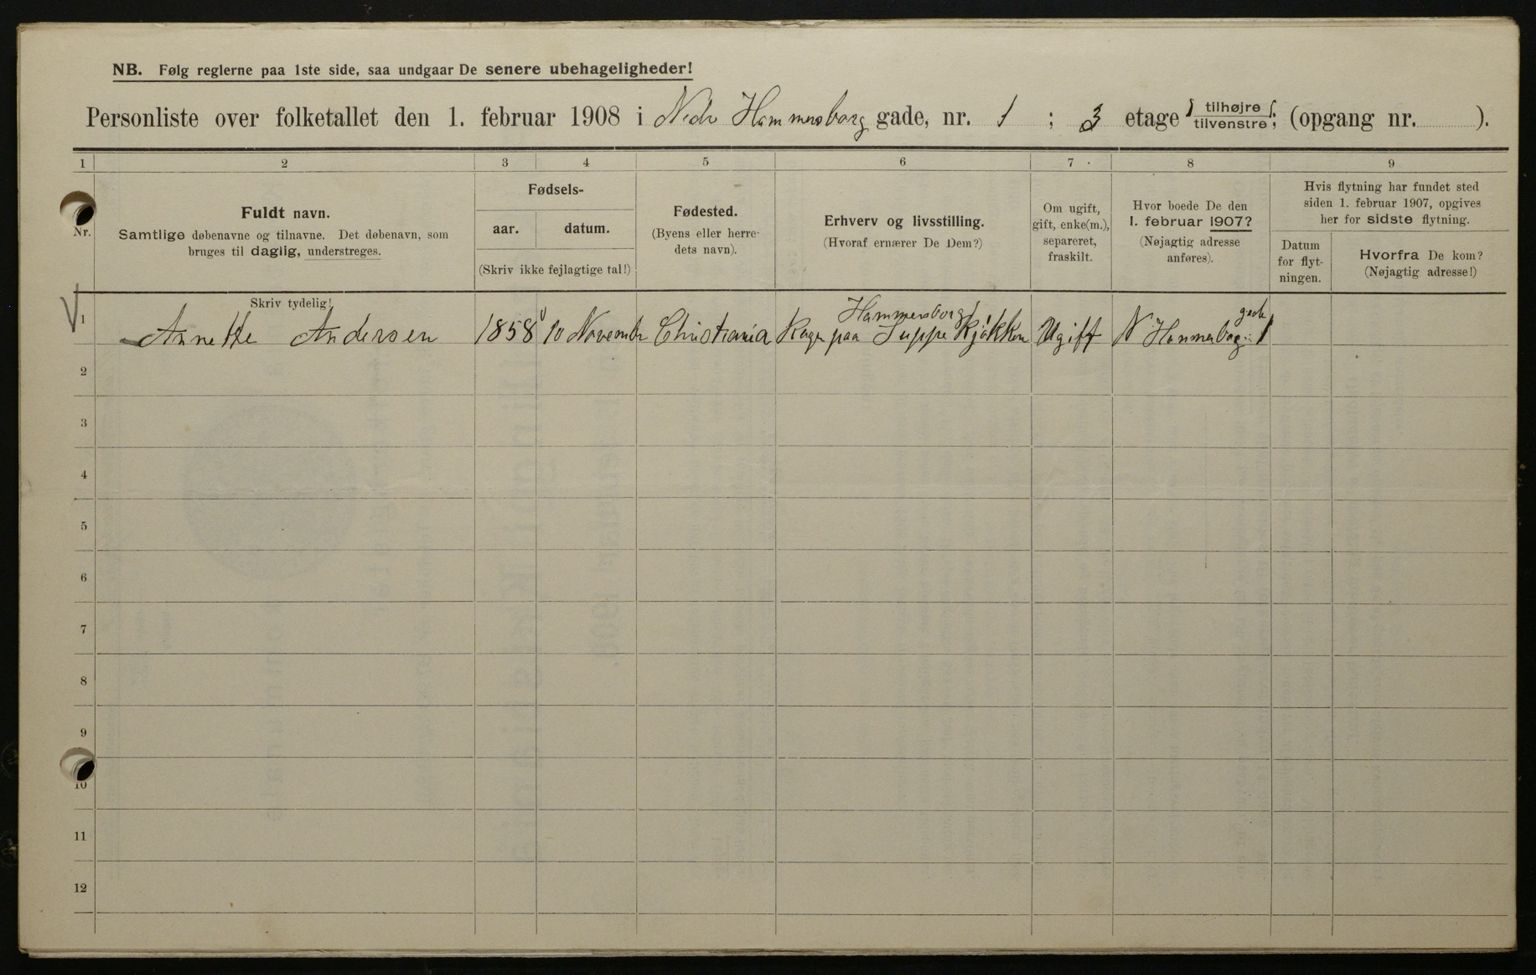 NB. Følg reglerne paa 1ste side, saa undgaar De senere ubehageligheder!
Personliste over folketallet den 1. februar 1908 i Nedr Hammersborg gade, nr. 1 ; 3 etage { tilhøjre tilvenstre }; (opgang nr. ).
1 2 3 4 5 6 7 8 9
Nr.
Fuldt navn.
Samtlige døbenavne og tilnavne. Det døbenavn, som
bruges til daglig, understreges.
Skriv tydelig!
Fødsels-
aar. datum.
(Skriv ikke fejlagtige tal!)
Fødested.
(Byens eller herre-
dets navn).
Erhverv og livsstilling.
(Hvoraf ernærer De Dem?)
Om ugift,
gift, enke(m.),
separeret,
fraskilt.
Hvor boede De den
1. februar 1907?
(Nøjagtig adresse
anføres).
Hvis flytning har fundet sted
siden 1. februar 1907, opgives
her for sidste flytning.
Datum
for flyt-
ningen.
Hvorfra De kom?
(Nøjagtig adresse!)
Hammersborg gade
1 Annette Andersen 1858 10 November Christiania paa Suppe Kjøkken Ugift N Hammerborg 1
2
3
4
5
6
7
8
9
10
11
12